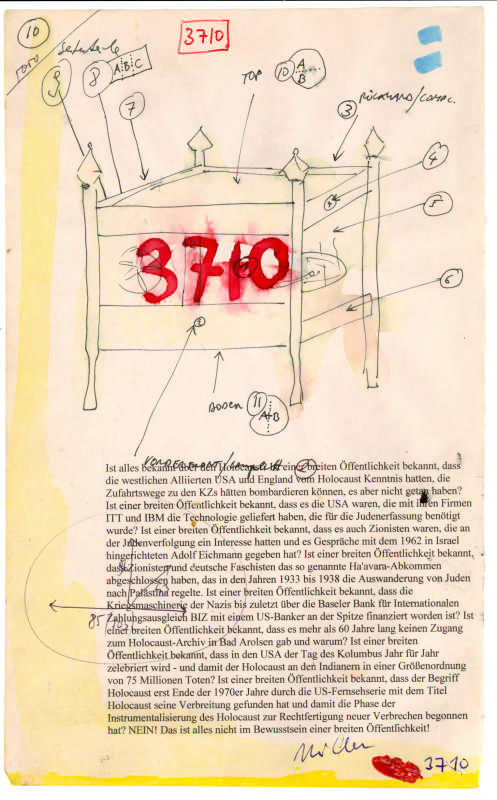 10
3710
8
A B C
7
TOP
10
A
B
3
RÜCKWAND
4
5
3710
6
BODEN
11
A+B
Ist alles bekannt über den Holocaust? Ist einer breiten Öffentlichkeit bekannt, dass
die westlichen Alliierten USA und England vom Holocaust Kenntnis hatten, die
Zufahrtswege zu den KZs hätten bombardieren können, es aber nicht getan haben?
Ist einer breiten Öffentlichkeit bekannt, dass es die USA waren, die mit ihren Firmen
ITT und IBM die Technologie geliefert haben, die für die Judenerfassung benötigt
wurde? Ist einer breiten Öffentlichkeit bekannt, dass es auch Zionisten waren, die an
der Judenverfolgung ein Interesse hatten und es Gespräche mit dem 1962 in Israel
hingerichteten Adolf Eichmann gegeben hat? Ist einer breiten Öffentlichkeit bekannt,
dass Zionisten und deutsche Faschisten das so genannte Ha'avara-Abkommen
abgeschlossen haben, das in den Jahren 1933 bis 1938 die Auswanderung von Juden
nach Palästina regelte. Ist einer breiten Öffentlichkeit bekannt, dass die
Kriegsmaschinerie der Nazis bis zuletzt über die Baseler Bank für Internationalen
Zahlungsausgleich BIZ mit einem US-Banker an der Spitze finanziert worden ist? Ist
einer breiten Öffentlichkeit bekannt, dass es mehr als 60 Jahre lang keinen Zugang
zum Holocaust-Archiv in Bad Arolsen gab und warum? Ist einer breiten
Öffentlichkeit bekannt, dass in den USA der Tag des Kolumbus Jahr für Jahr
zelebriert wird - und damit der Holocaust an den Indianern in einer Größenordnung
von 75 Millionen Toten? Ist einer breiten Öffentlichkeit bekannt, dass der Begriff
Holocaust erst Ende der 1970er Jahre durch die US-Fernsehserie mit dem Titel
Holocaust seine Verbreitung gefunden hat und damit die Phase der
Instrumentalisierung des Holocaust zur Rechtfertigung neuer Verbrechen begonnen
hat? NEIN! Das ist alles nicht im Bewusstsein einer breiten Öffentlichkeit!
85
3710